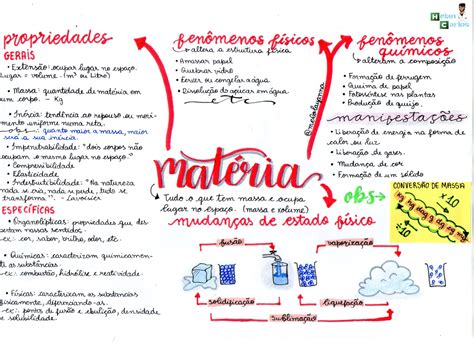 Helan
Carlos
propriedades
GERAIS
• Extensão: ocupar lugar no espaço.
Lugar = volume - (m³ ou Litro)
• Massa: quantidade de matéria em
um corpo. - Kg
• Inércia: tendência ao repouso ou movi-
mento uniforme numa reta.
obs: quanto maior a massa, maior
será a sua inércia.
• Impenetrabilidade: "dois corpos não
ocupam o mesmo lugar no espaço."
• Compressibilidade
• Elasticidade
• Indestrutibilidade: "Na natureza
nada se cria, nada se perde, tudo se
transforma" - Lavoisier
ESPECÍFICAS
• Organolépticas: propriedades que des-
pertam nossos sentidos.
ex: cor, sabor, brilho, odor, etc.
• Químicas: caracterizam quimicamen-
te as substâncias
ex: combustão, hidrólise, e reatividade
• Físicas: caracterizam as substâncias
fisicamente, diferenciando-as.
ex: pontos de fusão e ebulição, densidade
e solubilidade.
fenômenos físicos
altera a estrutura física
• Amassar papel
• Quebrar vidro
• Ferver ou congelar a água
• Dissolução do açúcar em água
etc
fenômenos
químicos
alteram a composição
• Formação de ferrugem
• Queima de papel
• Fotossíntese nas plantas
• Produção de queijo.
manifestações
• Liberação de energia na forma de
calor ou luz.
• Liberação de gases.
• Mudança de cor.
• Formação de um sólido
matéria
Tudo o que tem massa e ocupa
lugar no espaço. (massa e volume)
obs
CONVERSÃO DE MASSA
÷10
×10
mudanças de estado físico
fusão
vaporização
solidificação
liquefação
sublimação